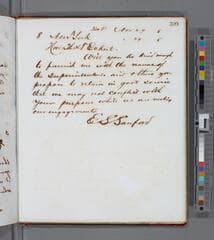 200
Nov 29 5
8 New York " 29 5
Hon Thos T Eckert.
Will you be kind enough
to furnish me with the names of
the Superintendents and others you
propose to retain in your service
that we may not conflict with
your purposes while we are making
our engagements
E S Sanford